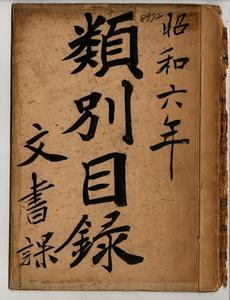 昭和六年
類別目録
文書課
8972